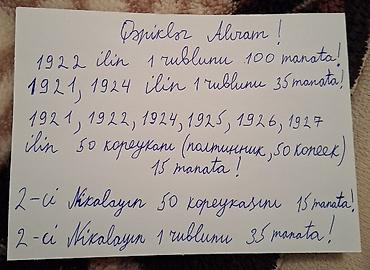 Qəpiklər Alıram!
1922 ilin 1 rublunu 100 manata!
1921, 1924 ilin 1 rublunu 35 manata!
1921, 1922, 1924, 1925, 1926, 1927
ilin 50 kopeykanı (полтинник, 50 копеек)
15 manata!
2-ci Nikalayın 50 kopeykasını 15 manata!
2-ci Nikalayın 1 rublunu 35 manata!